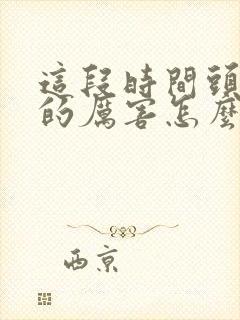 這段時間頭
的厲害怎麼
西京